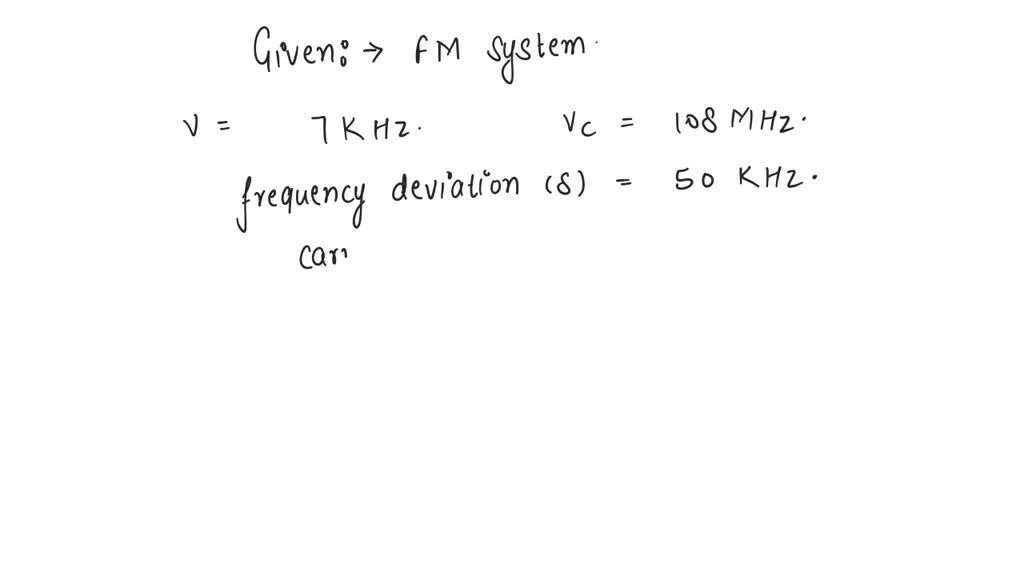 Given: → FM system.
ν = 7 KHz. νc = 108 MHz.
frequency deviation (δ) = 50 KHz.
carr